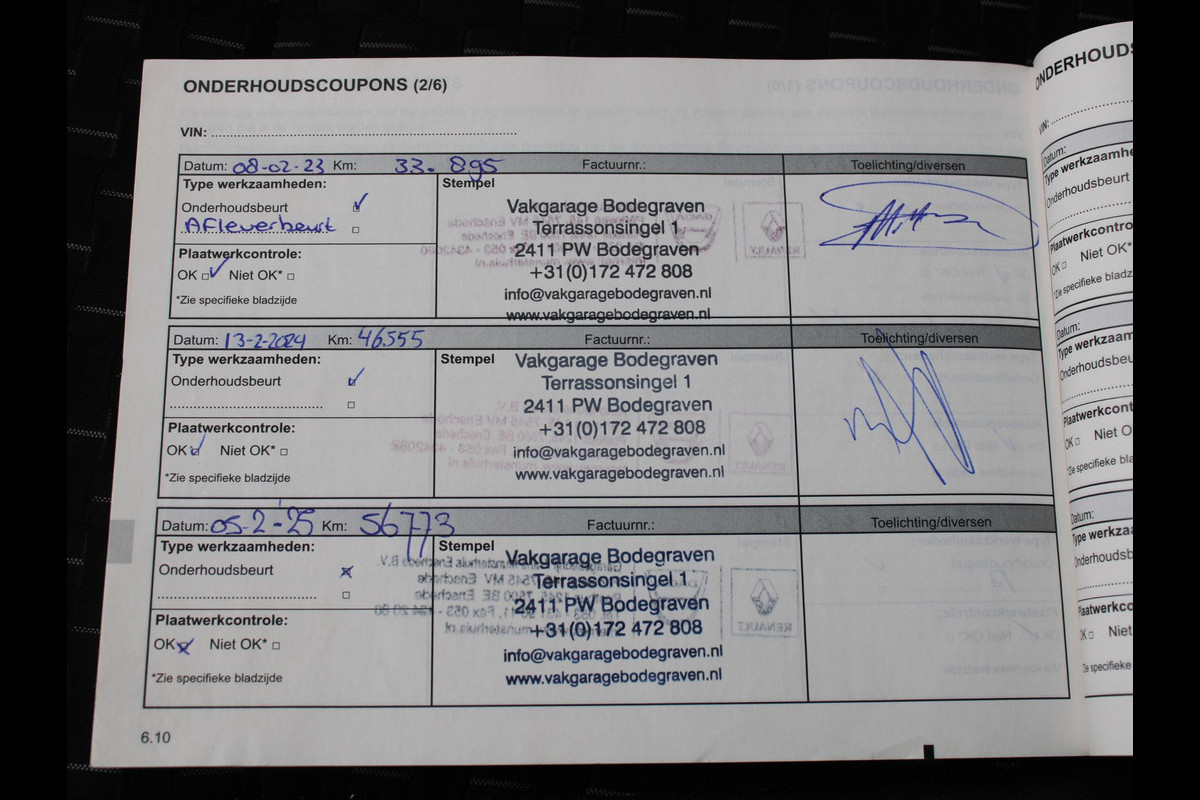 ONDERHOUDSCOUPONS (2/6)
VIN:
Datum: 08-02-23 Km: 33.895 Factuurnr.: Toelichting/diversen
Type werkzaamheden:
Onderhoudsbeurt
Afleverbeurt
Plaatwerkcontrole:
OK Niet OK*
*Zie specifieke bladzijde
Stempel
Vakgarage Bodegraven
Terrassonsingel 1
2411 PW Bodegraven
+31(0)172 472 808
info@vakgaragebodegraven.nl
www.vakgaragebodegraven.nl
Datum: 13-2-2024 Km: 46.555 Factuurnr.: Toelichting/diversen
Type werkzaamheden:
Onderhoudsbeurt
Plaatwerkcontrole:
OK Niet OK*
*Zie specifieke bladzijde
Stempel
Vakgarage Bodegraven
Terrassonsingel 1
2411 PW Bodegraven
+31(0)172 472 808
info@vakgaragebodegraven.nl
www.vakgaragebodegraven.nl
Datum: 05-2-'25 Km: 56773 Factuurnr.: Toelichting/diversen
Type werkzaamheden:
Onderhoudsbeurt
Plaatwerkcontrole:
OK Niet OK*
*Zie specifieke bladzijde
Stempel
Vakgarage Bodegraven
Terrassonsingel 1
2411 PW Bodegraven
+31(0)172 472 808
info@vakgaragebodegraven.nl
www.vakgaragebodegraven.nl
6.10
ONDERHOUDS
VIN:
Datum:
Type werkzaamhe
Onderhoudsbeurt
Plaatwerkcontro
OK Niet OK*
*Zie specifieke bladz
Datum:
Type werkzaam
Onderhoudsbeu
Plaatwerkcont
OK Niet O
*Zie specifieke bla
Datum:
Type werkza
Onderhoudsb
Plaatwerkco
OK Niet
*Zie specifieke